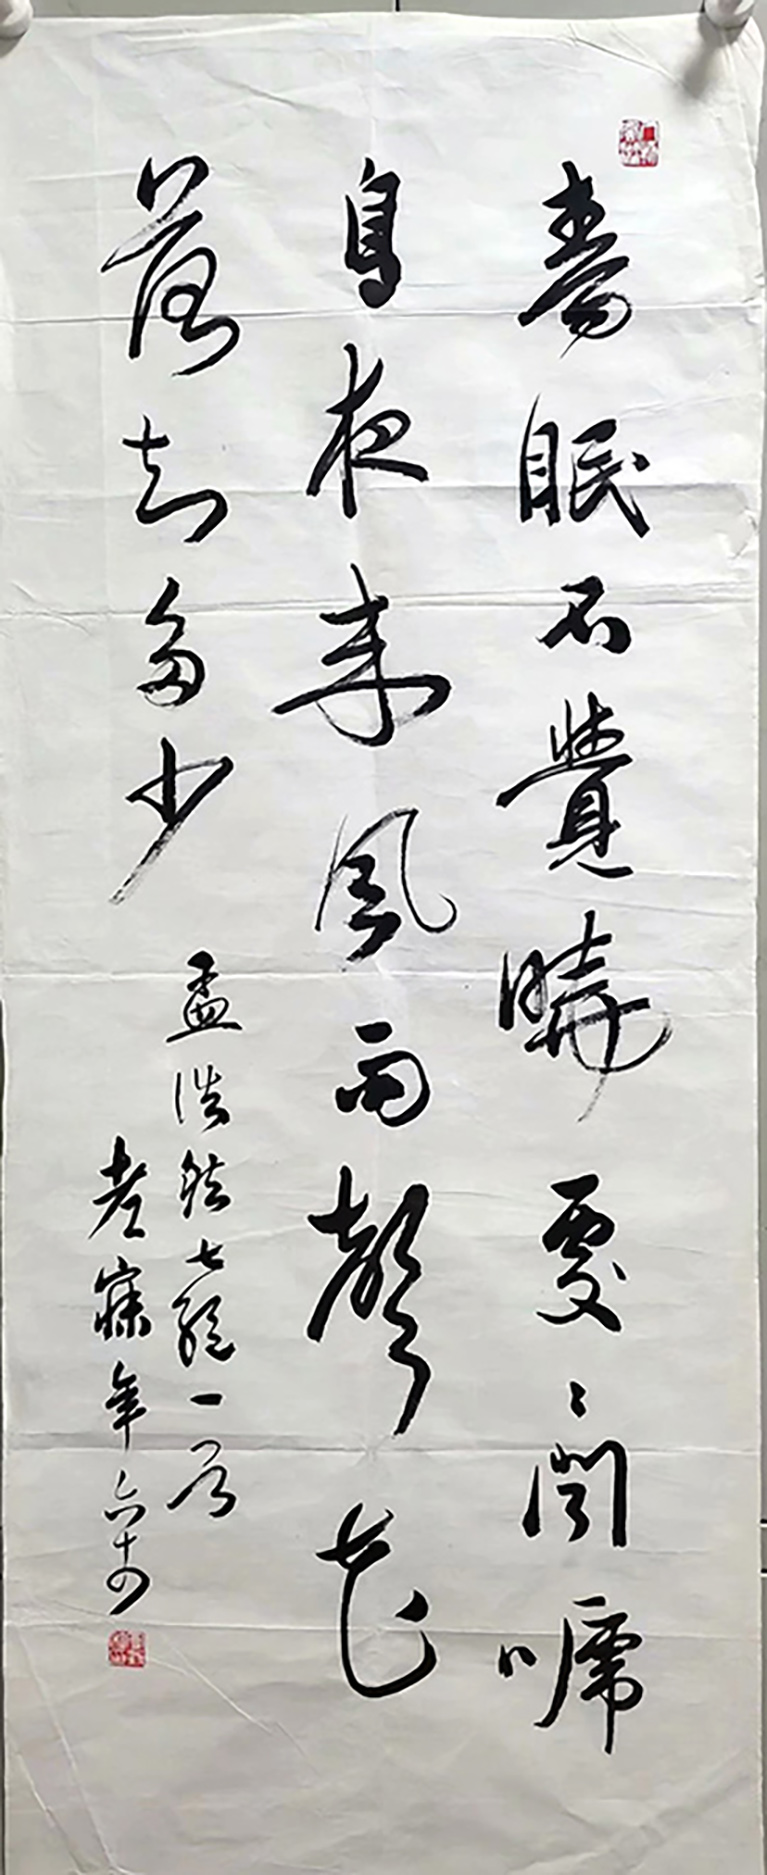 春眠不覺曉處〻聞啼
鳥夜来風雨聲花
落知多少
孟浩然七絕一首
老寐年六十四